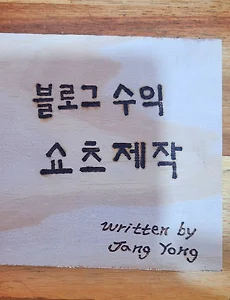 블로그 수익
쇼츠제작
written by
Jang Yong